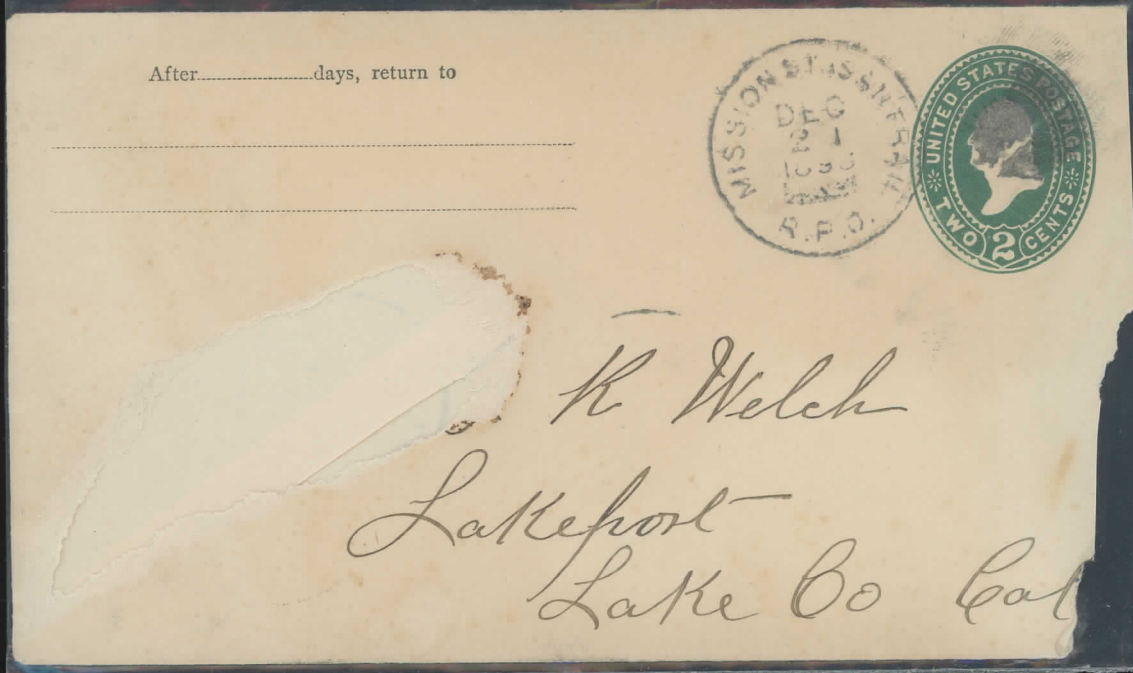 After..........days, return to
MISSION ST.
R.P.O.
DEC
UNITED STATES POSTAGE
TWO 2 CENTS
K Welch
Lakeport
Lake Co Cal